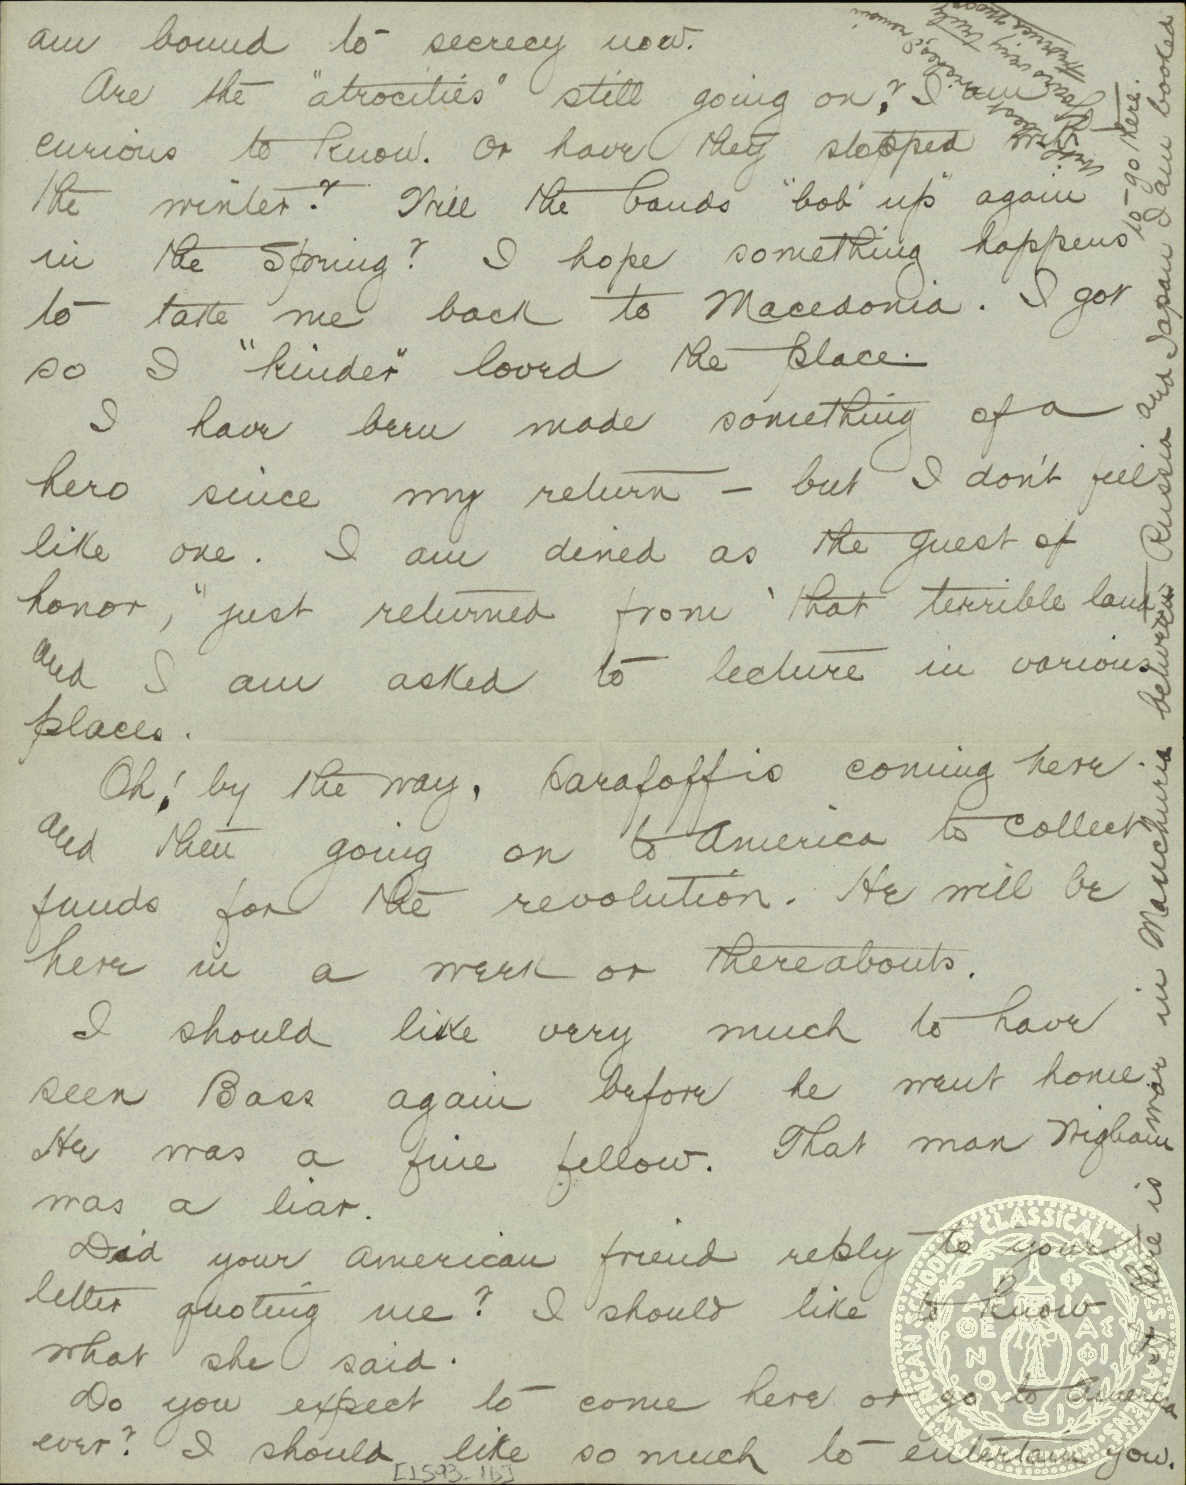 am bound to secrecy now.
Are the "atrocities" still going on? I am
curious to know. Or have they stopped
the winter? Will the bands "bob up" again
in the Spring? I hope something happens
to take me back to Macedonia. I got
so I "kinder" loved the place.
I have been made something of a
hero since my return — but I don't feel
like one. I am dined as the guest of
honor, "just returned from 'that terrible land
and I am asked to lecture in various
places.
Oh! by the way, Sarafoff is coming here.
and then going on to America to collect
funds for the revolution. He will be
here in a week or thereabouts.
I should like very much to have
seen Bass again before he went home.
He was a fine fellow. That man Wigham
was a liar.
Did your American friend reply to your
letter quoting me? I should like to know
what she said.
Do you expect to come here or go to America
ever? I should like so much to entertain you.
If there is war in Manchuria between Russia and Japan I am booked
to go there.
With
best
I remain
Yours very truly
[1593-1b]
AMERICAN SCHOOL OF CLASSICAL STUDIES AT ATHENS